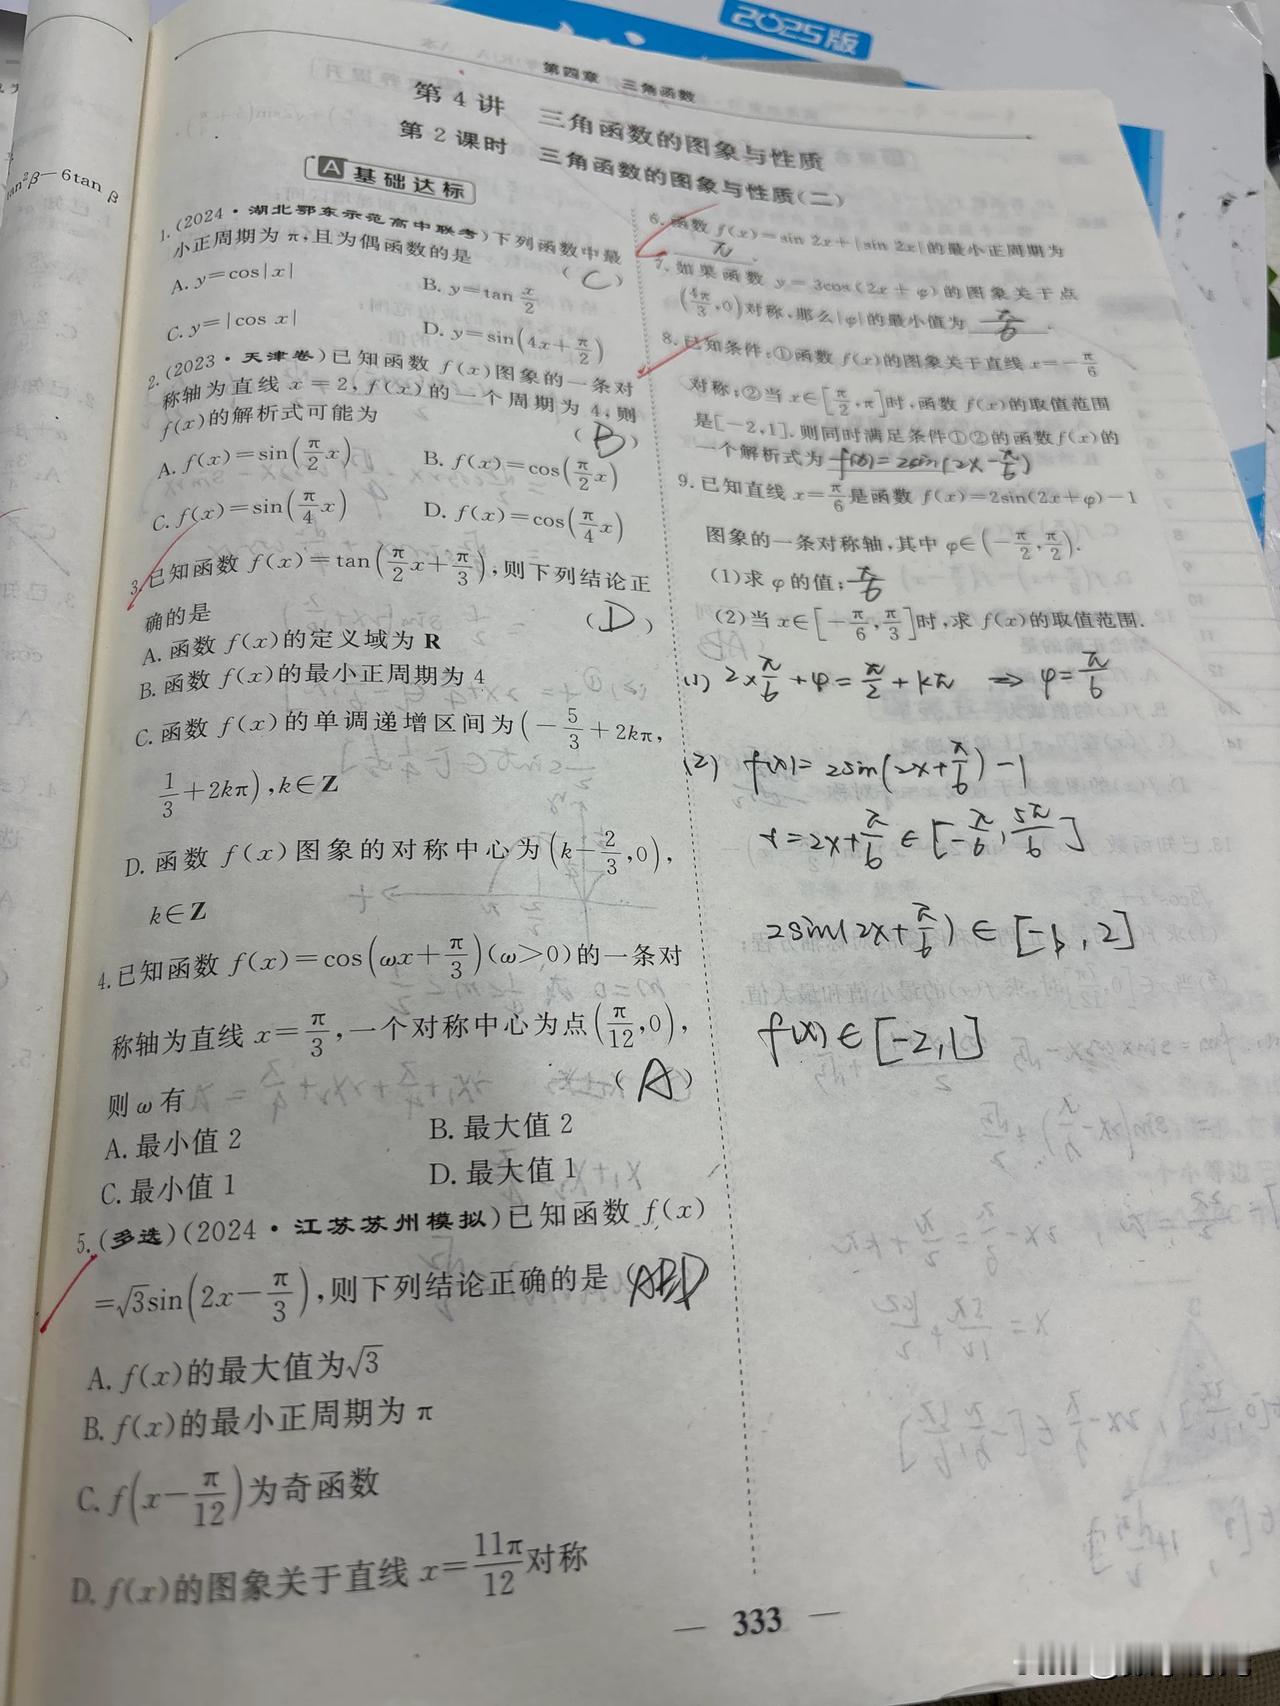 2025版
第四章 三角函数
第4讲 三角函数的图象与性质
第2课时 三角函数的图象与性质(二)
A 基础达标
tan²β－6tan β
1.(2024·湖北鄂东示范高中联考)下列函数中最
小正周期为 π,且为偶函数的是 (C)
A. y=cos|x| B. y=tan x/2
C. y=|cos x| D. y=sin(4x+π/2)
2.(2023·天津卷)已知函数 f(x)图象的一条对
称轴为直线 x=2,f(x)的一个周期为 4,则
f(x)的解析式可能为 (B)
A. f(x)=sin(π/2 x) B. f(x)=cos(π/2 x)
C. f(x)=sin(π/4 x) D. f(x)=cos(π/4 x)
3.已知函数 f(x)=tan(π/2 x+π/3),则下列结论正
确的是 (D)
A. 函数 f(x)的定义域为 R
B. 函数 f(x)的最小正周期为 4
C. 函数 f(x)的单调递增区间为(－5/3+2kπ,
1/3+2kπ),k∈Z
D. 函数 f(x)图象的对称中心为(k－2/3,0),
k∈Z
4.已知函数 f(x)=cos(ωx+π/3)(ω>0)的一条对
称轴为直线 x=π/3,一个对称中心为点(π/12,0),
则 ω 有 (A)
A. 最小值 2 B. 最大值 2
C. 最小值 1 D. 最大值 1
5.(多选)(2024·江苏苏州模拟)已知函数 f(x)
=√3sin(2x－π/3),则下列结论正确的是 (ABD
A. f(x)的最大值为√3
B. f(x)的最小正周期为 π
C. f(x－π/12)为奇函数
D. f(x)的图象关于直线 x=11π/12对称
6.函数 f(x)=sin 2x+|sin 2x|的最小正周期为
π.
7.如果函数 y=3cos(2x+φ)的图象关于点
(4π/3,0)对称,那么|φ|的最小值为 π/6.
8.已知条件:①函数 f(x)的图象关于直线 x=－π/6
对称;②当 x∈[π/2,π]时,函数 f(x)的取值范围
是[－2,1].则同时满足条件①②的函数f(x)的
一个解析式为 f(x)=2sin(2x－π/6)
9.已知直线 x=π/6是函数 f(x)=2sin(2x+φ)－1
图象的一条对称轴,其中 φ∈(－π/2,π/2).
(1)求 φ 的值; π/6
(2)当 x∈[－π/6,π/3]时,求 f(x)的取值范围.
(1) 2×π/6+φ=π/2+kπ ⇒ φ=π/6
(2) f(x)=2sin(2x+π/6)－1
t=2x+π/6∈[－π/6,5π/6]
2sin(2x+π/6)∈[－1,2]
f(x)∈[－2,1]
— 333 —